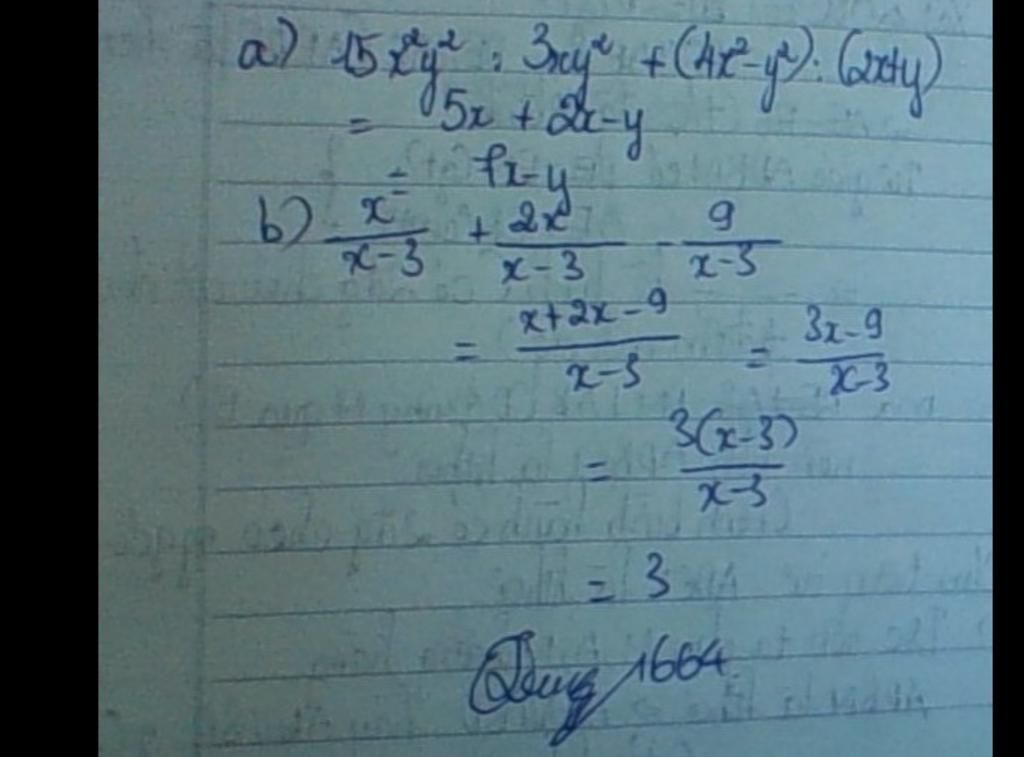 a) 15x²y² : 3xy² + (4x² - y²) : (2x+y)
= 5x + 2x - y
= 7x - y
b) x/(x-3) + 2x/(x-3) - 9/(x-3)
= (x+2x-9)/(x-3) = (3x-9)/(x-3)
= 3(x-3)/(x-3)
= 3
1664